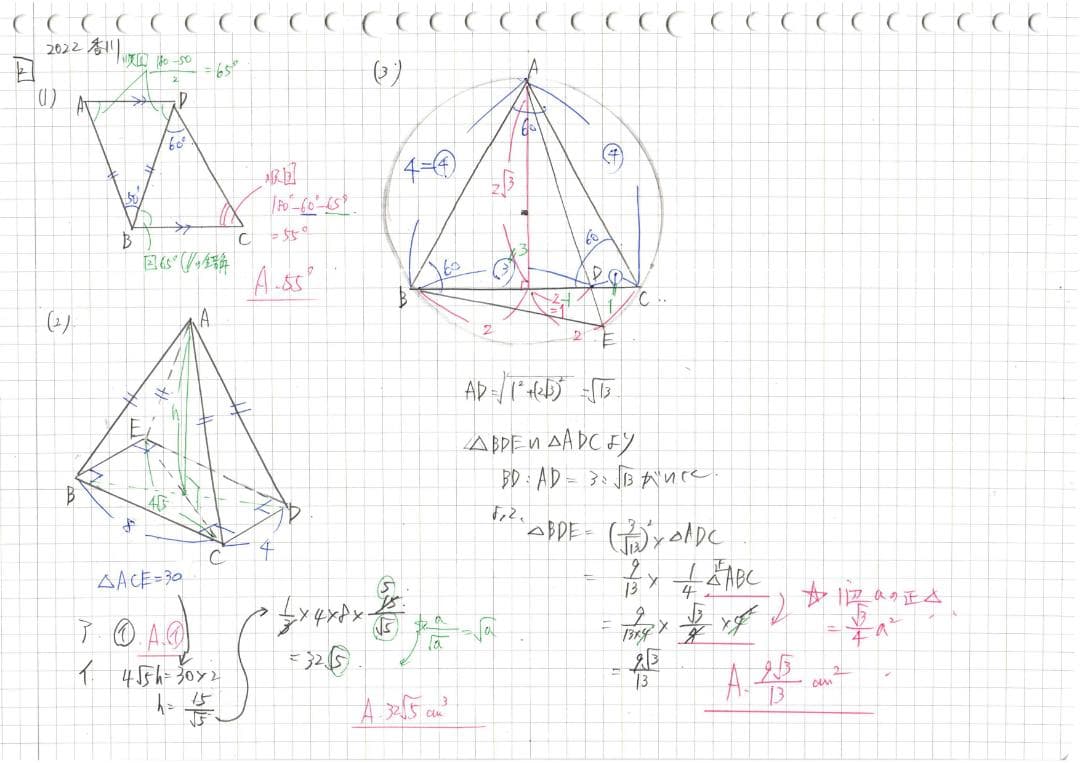 2022 香川
2
(1)
順1 180-50/2 = 65°
A
D
60°
50°
B
C
順3
180°-60°-65°
=55°
2 65° (∥の錯角
A.55°
(2)
A
h
E
B
4√5
D
8
C
4
△ACE=30
ア. ① A.①
イ. 4√5h=30×2
h= 15/√5
1/3 ×4×8× 15/√5
5
=32√5
a/√a =√a
A.32√5 cm³
(3)
A
60
4=④
④
2√3
60
60
③
3
D
①
B
C
2
2-1
=1
1
2
E
AD=√1²+(2√3)² =√13
△BDE∽△ADCより
BD:AD=3:√13
よって、
△BDE=(3/√13)²×△ADC
= 9/13 × 1/4 正△ABC
= 9/13×4 × √3/4 ×4²
= 9√3/13
☆ 1辺aの正△
= √3/4 a²
A. 9√3/13 cm²